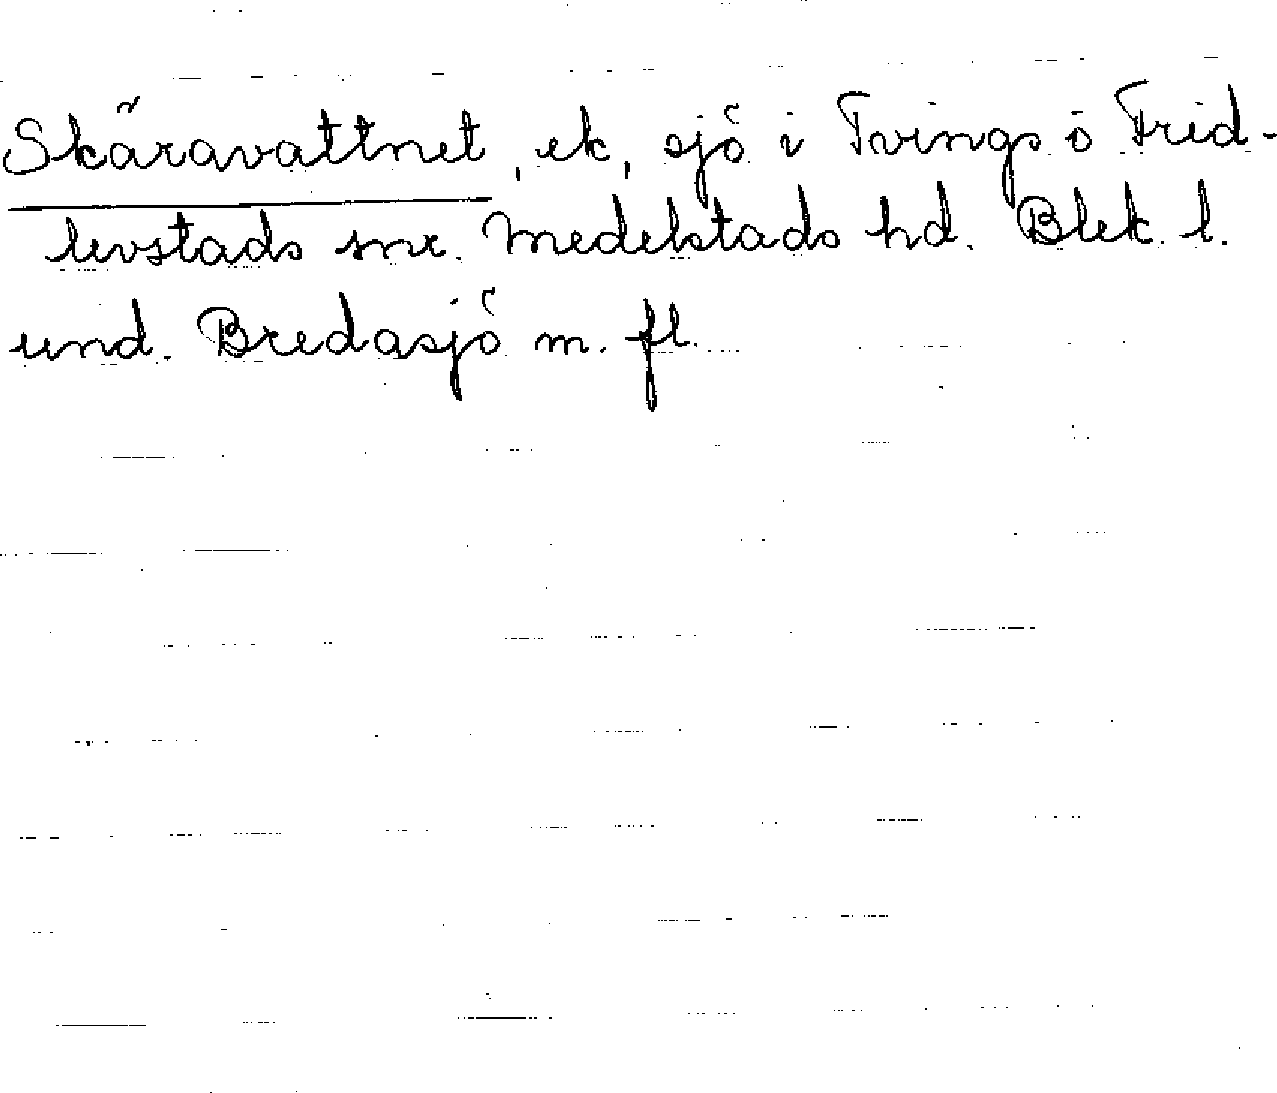 Skäravattnet, ek, sjö i Tvings o Frid-
levstads snr. Medelstads hd. Blek. l.
und. Bredasjö m. fl.